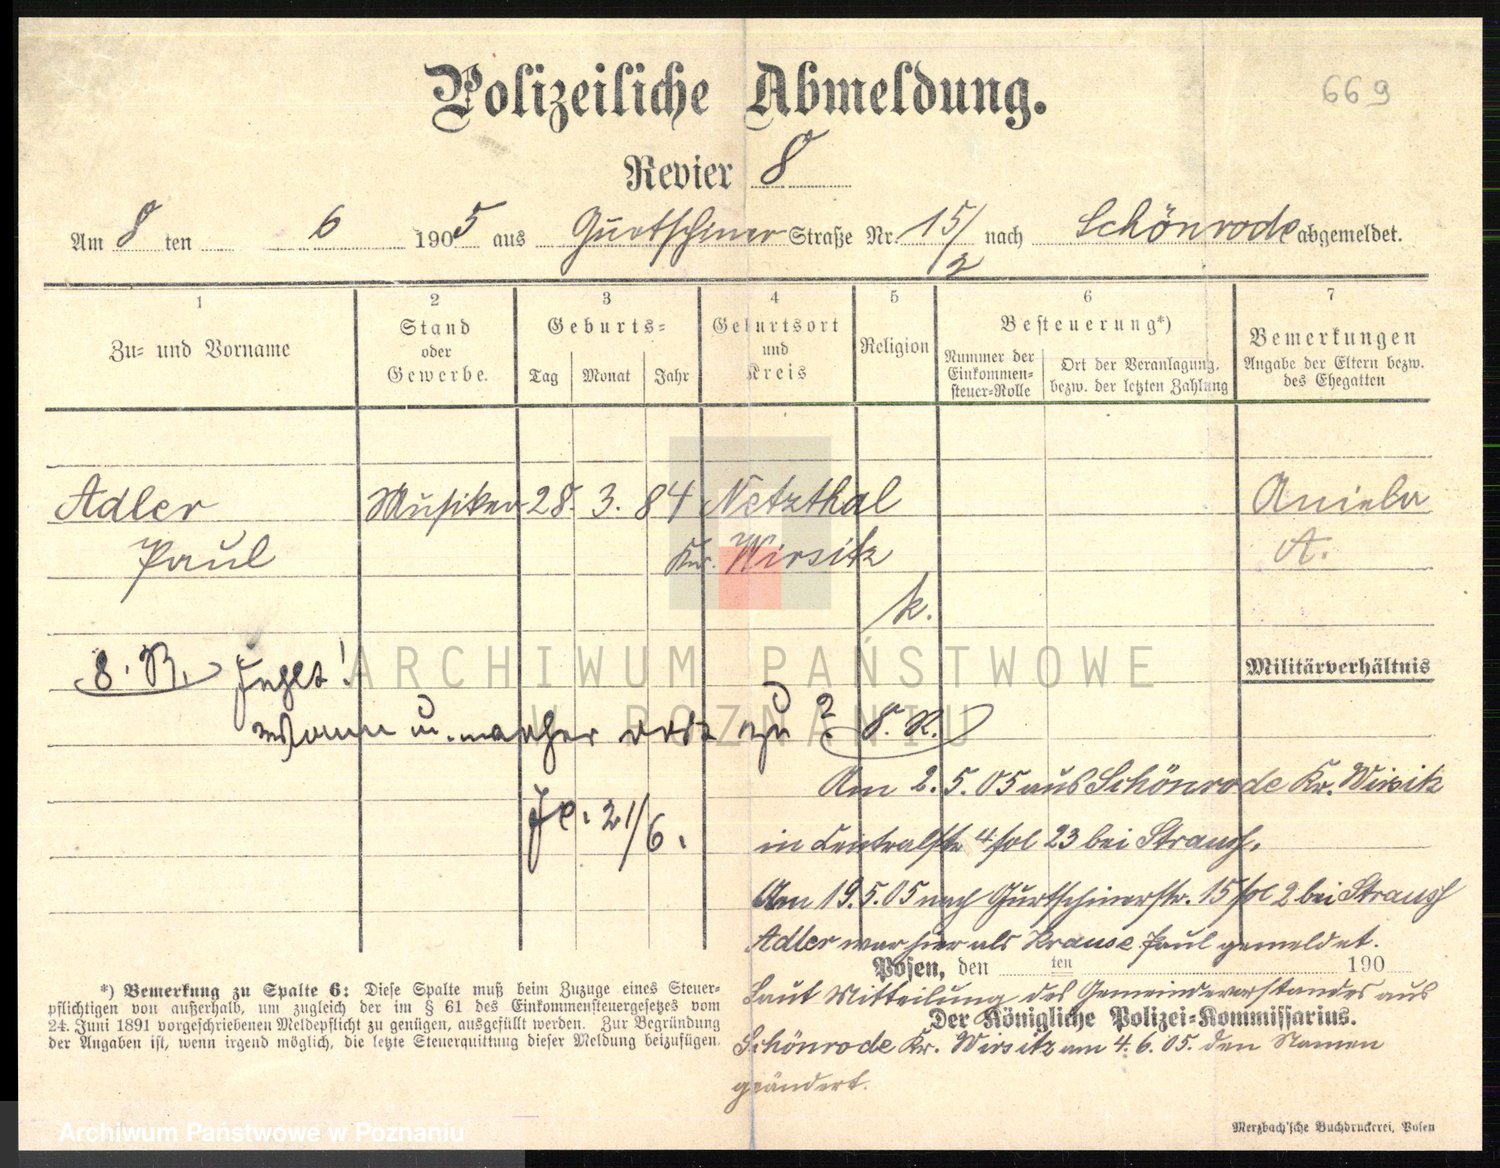 669
Polizeiliche Abmeldung.
Revier 8
Am 8 ten 6 1905 aus Gurtschiner Straße Nr. 15/2 nach Schönrode abgemeldet.
1 2 3 4 5 6 7
Zu- und Vorname
Stand oder Gewerbe.
Geburts-
Tag Monat Jahr
Geburtsort und Kreis
Religion
Besteuerung*)
Nummer der Einkommen-steuer-Rolle
Ort der Veranlagung, bezw. der letzten Zahlung
Bemerkungen
Angabe der Eltern bezw. des Ehegatten
Adler Musiker 28. 3. 84 Netzthal Aniela
Paul Kr. Wirsitz A.
k.
8. R. Fehlt!
Militärverhältnis
Wann u. woher dort zu? 8. R.
21/6.
Am 2.5.05 aus Schönrode Kr. Wirsitz
in Centralstr 4 fol 23 bei Strauch.
Am 19.5.05 nach Gurtschinerstr. 15 fol 2 bei Strauch
Adler war hier als Krause Paul gemeldet.
Posen, den ten 190
Laut Mitteilung des Gemeindevorstandes aus
Der Königliche Polizei-Kommissarius.
Schönrode Kr. Wirsitz am 4.6.05. den Namen
geändert.
*) Bemerkung zu Spalte 6: Diese Spalte muß beim Zuzuge eines Steuer-
pflichtigen von außerhalb, um zugleich der im § 61 des Einkommensteuergesetzes vom
24. Juni 1891 vorgeschriebenen Meldepflicht zu genügen, ausgefüllt werden. Zur Begründung
der Angaben ist, wenn irgend möglich, die letzte Steuerquittung dieser Meldung beizufügen.
Merzbach'sche Buchdruckerei, Posen
ARCHIWUM PAŃSTWOWE
W POZNANIU
Archiwum Państwowe w Poznaniu